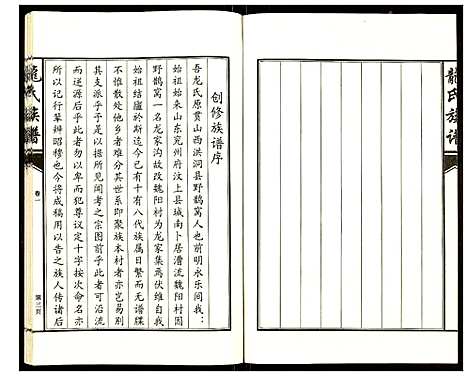 龍氏族谱
创修族谱序
吾龙氏原贯山西洪洞县野鹊窝人也前明永乐间我:
始祖始来山东兖州府汶上县城南卜居漕流魏阳村因
野鹊窝一名龙家沟故改魏阳村为龙家集焉伏维自我
始祖结庐於斯迄今已十有八代族属日繁而无谱牒
不惟散处他乡者难分其世系即聚族本村者亦岂易别
其支派乎于是以据所见闻者之宗图前乎此者可沿流
而逆源后乎此者亦以卑而犯尊议定十字按次命名
所以记行辈辨昭穆也今将成稿用以告之族人传诸后
龍氏族譜
卷一
第三页